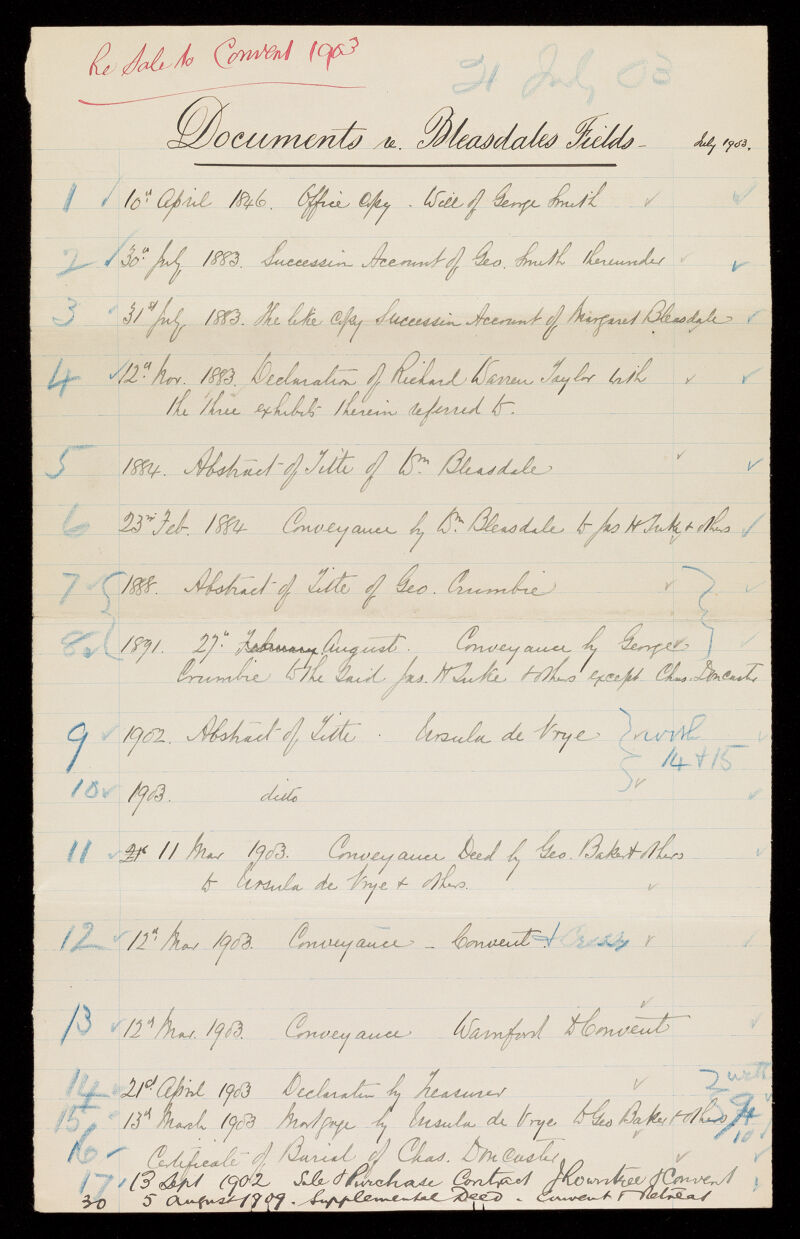 Re Sale to Convent 1903
21 July 03
Documents re. Bleasdales Fields - July 1903.
1 10th April 1846. Office Copy. Will of George Smith
2 30th July 1883. Succession Account of Geo. Smith thereunder
3 31st July 1883. The like copy Succession Account of Margaret Bleasdale
4 12th Nov. 1883. Declaration of Richard Warren Taylor with
the three exhibits therein referred to.
5 1884. Abstract of Title of Wm Bleasdale
6 23rd Feb. 1884 Conveyance by Wm Bleasdale to Jas H Tuke & others
7 1888. Abstract of Title of Geo. Crumbie
8 1891. 27th February August. Conveyance by George
Crumbie to the said Jas. H Tuke & others except Chas. Doncaster
9 1902. Abstract of Title. Ursula de Vrye with
14 & 15
10 1903. ditto
11 11 Mar 1903. Conveyance Deed by Geo. Baker & others
to Ursula de Vrye & others.
12 12th Mar 1903. Conveyance - Convent &
13 12th Mar. 1903. Conveyance Warnford & Convent
14 21st April 1903 Declaration by Treasurer with
15 13th March 1903 Mortgage by Ursula de Vrye to Geo Baker & others 9 &
10
16 Certificate of Burial of Chas. Doncaster
17 13 Sept 1902 Sale & Purchase Contract J Rowntree & Convent
30 5 August 1809. Supplemental Deed - Convent & Retreat